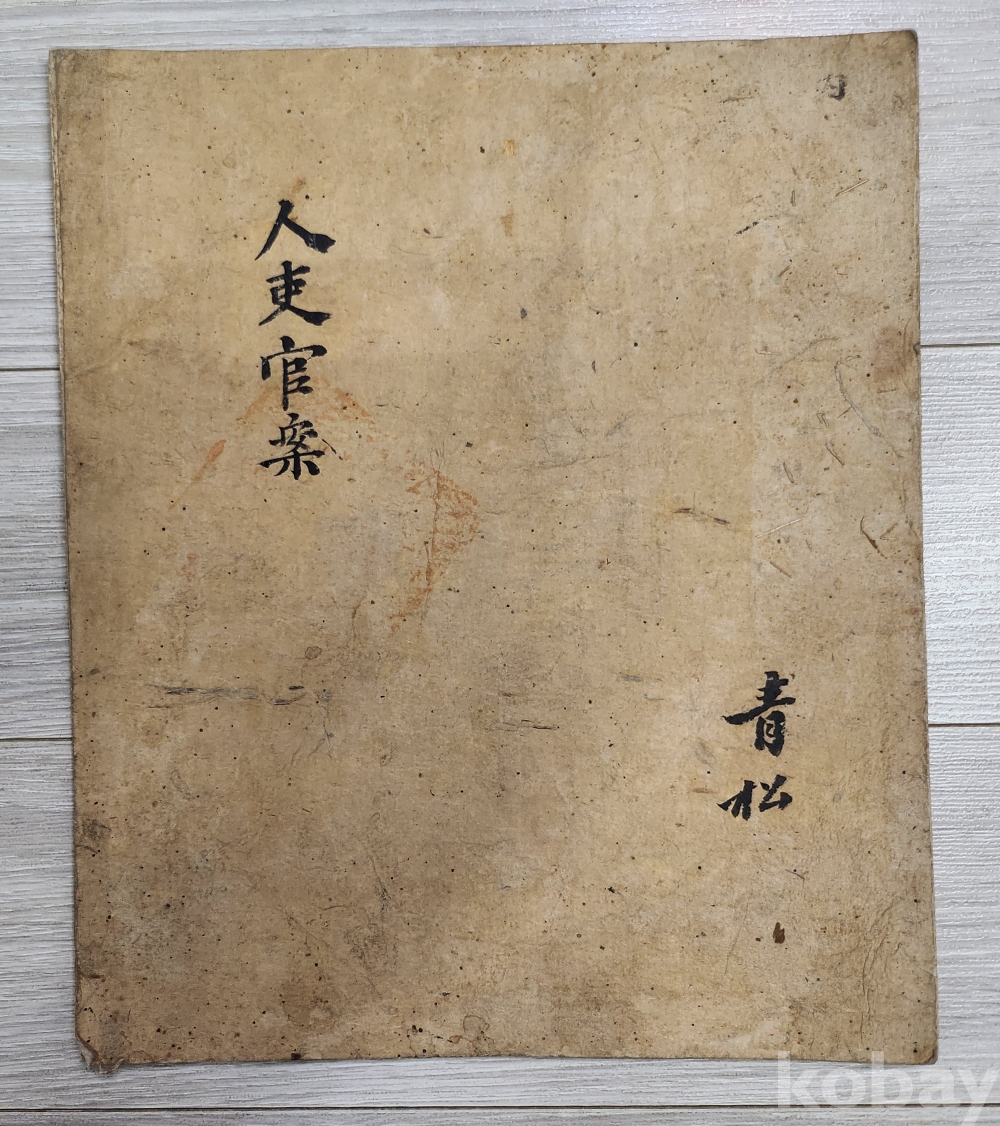 人吏官案
青松
kobay